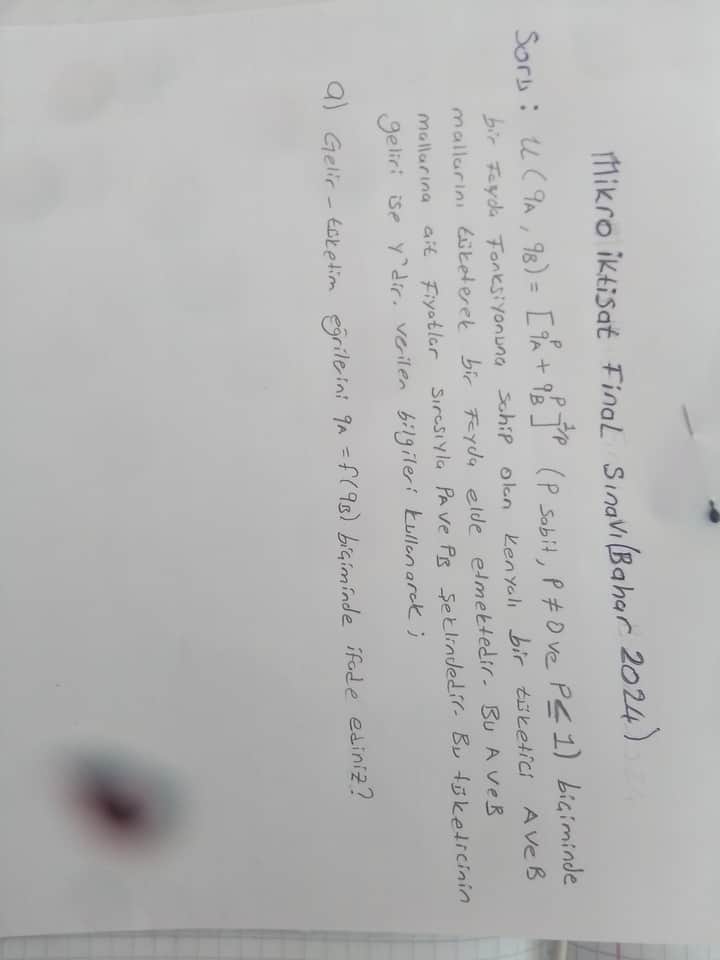 Mikro iktisat Final Sınavı (Bahar 2024)
Soru: U(qA, qB) = [qA^P + qB^P]^1/P (P sabit, P ≠ 0 ve P ≤ 1) biçiminde
bir Fayda Fonksiyonuna sahip olan Kenyalı bir tüketici A ve B
mallarını tüketerek bir Fayda elde etmektedir. Bu A ve B
mallarına ait Fiyatlar sırasıyla PA ve PB şeklindedir. Bu tüketicinin
geliri ise Y'dir. verilen bilgileri kullanarak;
a) Gelir-tüketim eğrilerini qA = f(qB) biçiminde ifade ediniz?